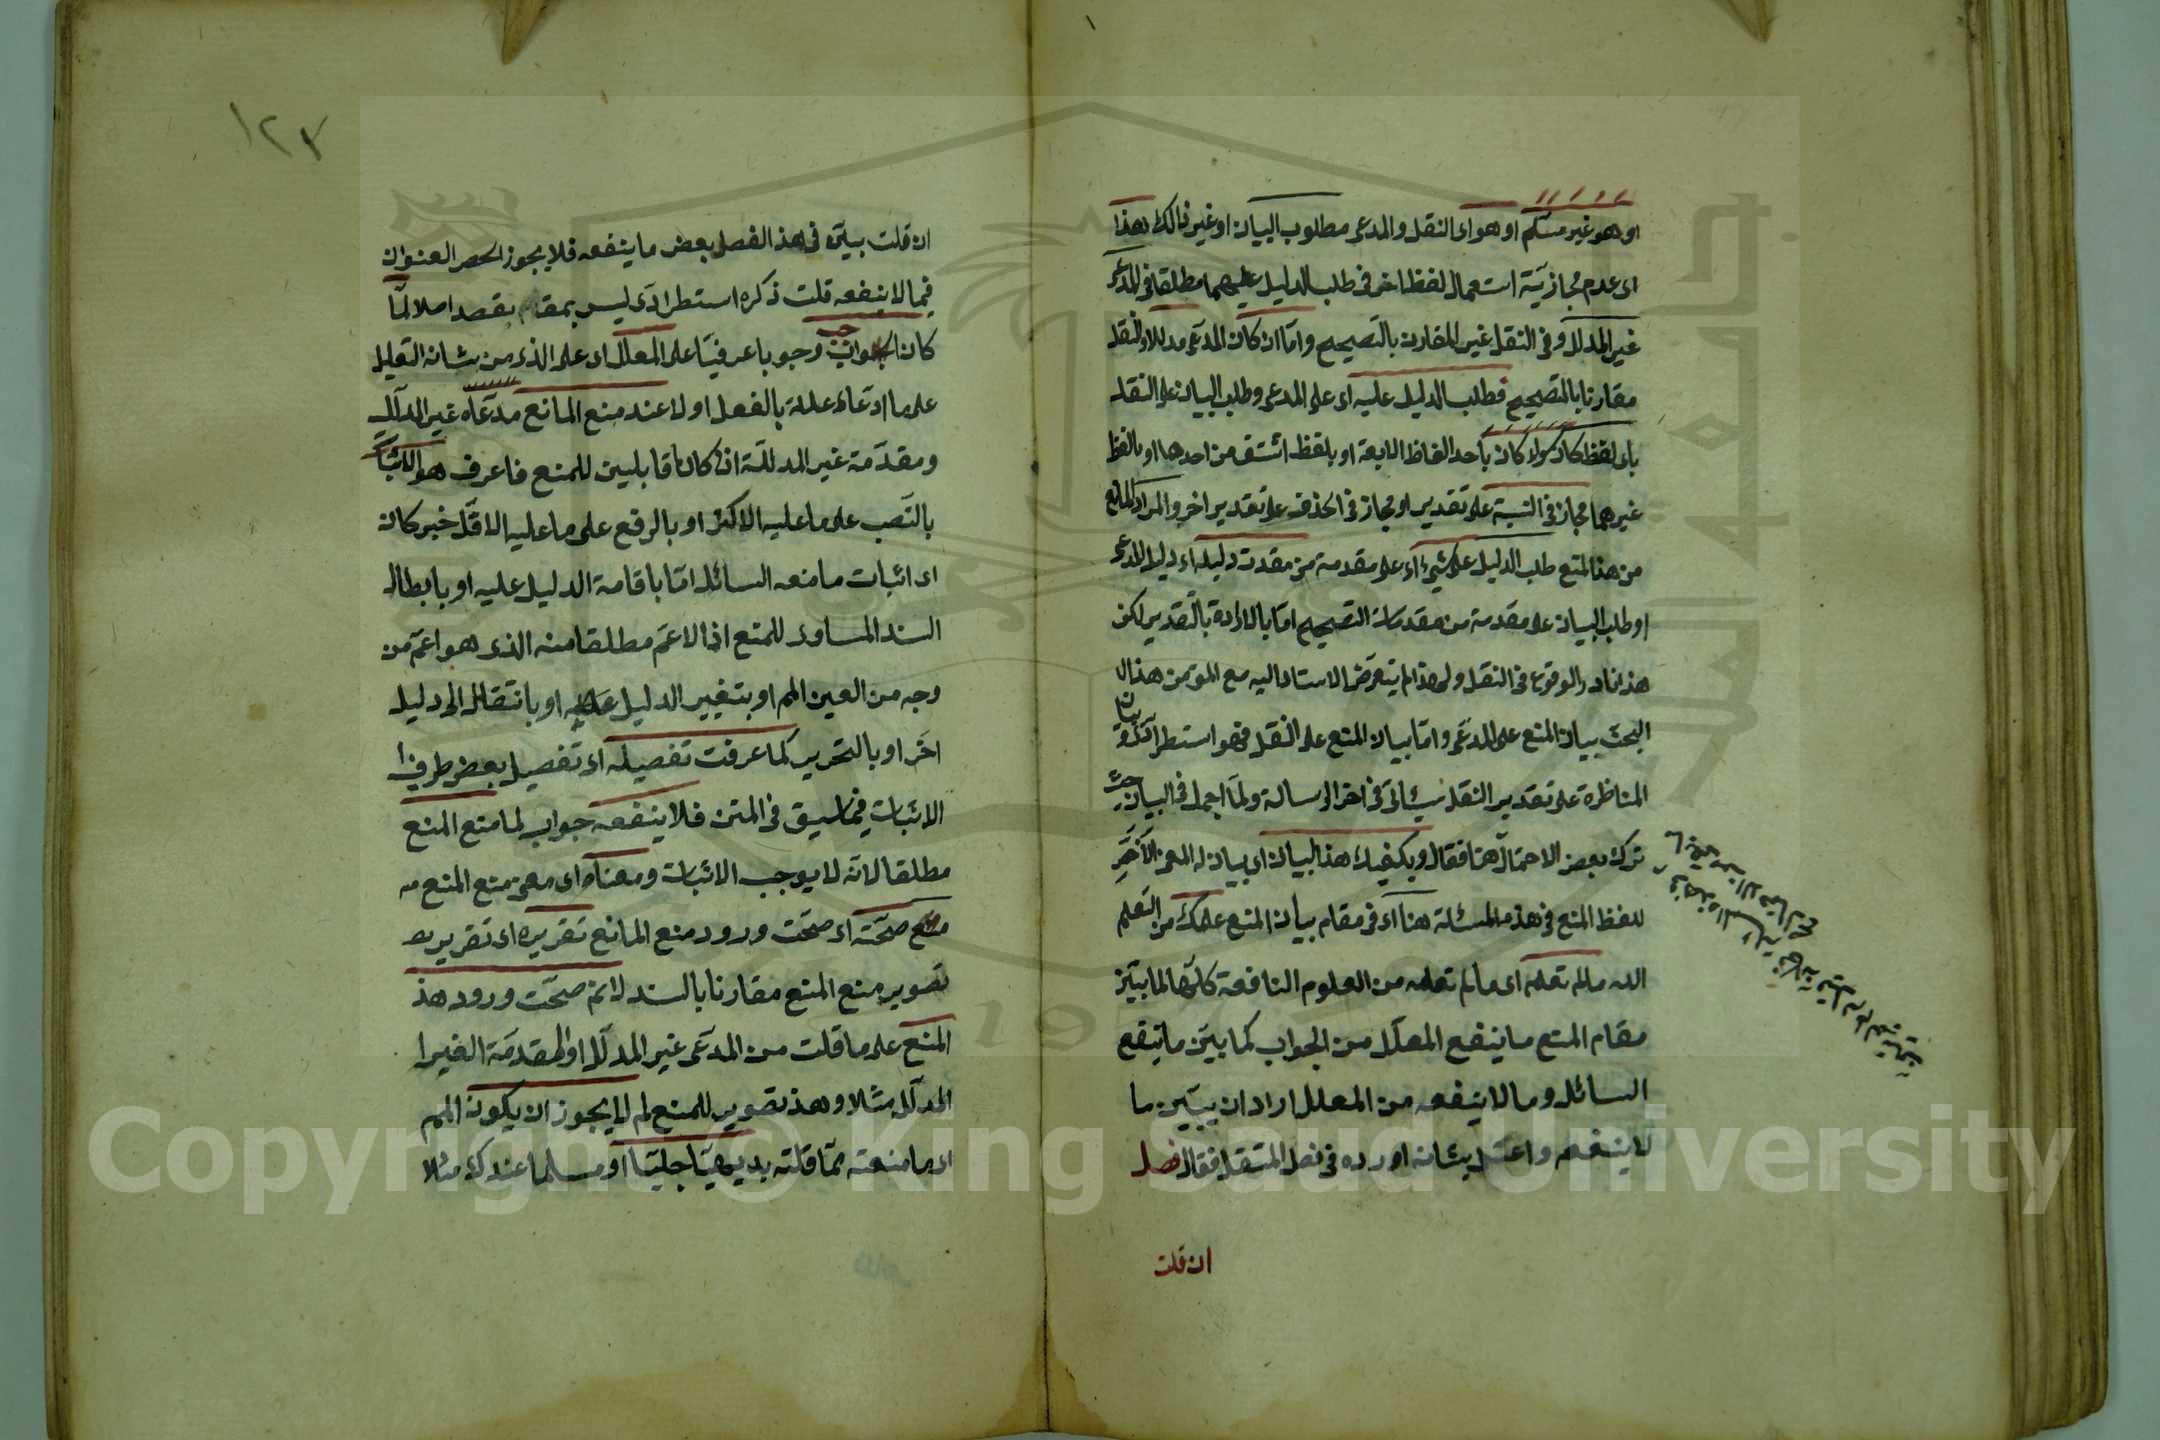 او هو غير مسلم او هو اى النقل والمدعى مطلوب البيان او غير ذالك هذا
اى عدم مجازية استعمال لفظ اخر فى طلب الدليل عليهما مطلقا فى المدعى
غير المدلل وفى النقل غير المقارن بالتصحيح واما ان كان المدعى مدللا والنقل
مقارنا بالتصحيح فطلب الدليل عليه اى على المدعى وطلب البيان على النقل
باى لفظ كان سواء كان باحد الفاظ الاربعة او بلفظ اشتق من احدها او بالفظ
غيرهما مجاز فى النسبة على تقدير او مجاز فى الحذف على تقدير اخر والمراد المانع
من هذا المنع طلب الدليل على شىء اى على مقدمة من مقدمت دليله اى دليل المدعى
او طلب البيان على مقدمة من مقدمات التصحيح اما بالارادة بالتقدير لكن
هذا نادر الوقوع فى النقل ولهذا لم يتعرض الاستاد اليه مع المؤ من هذا ال
البحث بيان المنع على المدعى واما بيان المنع على النقل فهو استطرادى
المناظرة على تقدير النقل سيئاتى فى اخر الرسالة ولما اجمل فى البيان حيث
ترك بعض الاحتمال هنا فقال ويكفيك هذا البيان اى بيان له المعنى الآخر
للفظ المنع فى هذه المسئلة هنا اى فى مقام بيان المنع علمك من العلم
الله مالم تعلم اى مالم تعلمه من العلوم النافعة كلها لما بين
مقام المنع ما ينفع المعلل من الجواب كما بين ما ينفع
السائل وما لا ينفعه من المعلل اراد ان يبين ما
لا ينفعه واعتنى بشانه اورده فى فصل المستقل فقال فصل
ان قلت
١٢٧
ان قلت بينه فى هذ الفصل بعض ما ينفعه فلا يجوز الحصر العنوان
فيما لا ينفعه قلت ذكره استطرادى ليس بمقام بقصد اصلا لما
كان الجواب وجوبا عرفيا على المعلل اى على الذى من شانه التعليل
على ما ادعاه علله بالفعل اولا عند منع المانع مدعاه غير المدلل
ومقدمة غير المدللة اذا كانا قابلين للمنع فاعرف هو الاثبات
بالنصب على ما عليه الاكثر او بالرفع على ما عليه الاقل خبر كان
اى اثبات ما منعه السائل اما باقامة الدليل عليه او بابطال
السند المساوى للمنع اذ الاعم مطلقا منه الذى هو اعم من
وجه من العين المم او بتغيير الدليل عليه او بانتقال الى دليل
اخر او بالتحرير كما عرفت تفصيله اى تفصيل بعض طرف ا
الاثبات فيما سبق فى المتن فلا ينفعه جواب لما منع المنع
مطلقا لانه لا يوجب الاثبات ومعناه اى معنى منع المنع
منع صحته اى صحت ورود منع المانع تقريره اى تقرير
تصوير منع المنع مقارنا بالسند لانم صحت ورود هذ
المنع على ما قلت من المدعى غير المدلل او المقدمة الغير ا
المدلل مثلا وهذ تصوير للمنع لم لا يجوز ان يكون المم
اى ما منعته مما قلته بديهيا جليا او مسلما عندك مثلا